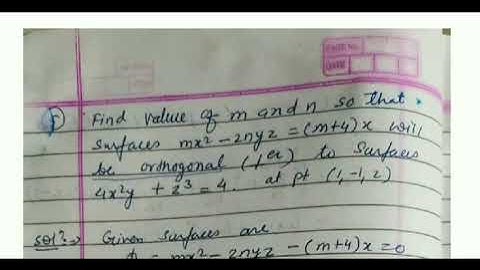 Find value of m and n so that
surfaces mx² - 2nyz = (m+4)x will
be orthogonal (⊥er) to surfaces
4x²y + z³ = 4. at pt (1, -1, 2)
Sol²:→ Given surfaces are
= mx² - 2nyz - (m+4)x = 0